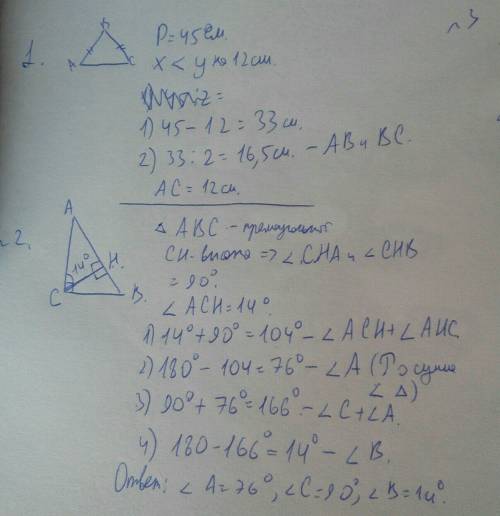 N3
1.
B
A
C
P = 45 см.
x < y на 12 см.
1) 45 - 12 = 33 см.
2) 33 : 2 = 16,5 см. - AB и BC.
AC = 12 см.
2.
A
14°
H.
C
B.
△ ABC - прямоугольный
CH - высота => ∠CHA и ∠CHB
= 90°.
∠ACH = 14°.
1) 14° + 90° = 104° - ∠ACH + ∠AHC
2) 180° - 104 = 76° - ∠A (По сумме
∠ △)
3) 90° + 76° = 166° - ∠C + ∠A.
4) 180 - 166° = 14° - ∠B.
Ответ: ∠A = 76°, ∠C = 90°, ∠B = 14°.